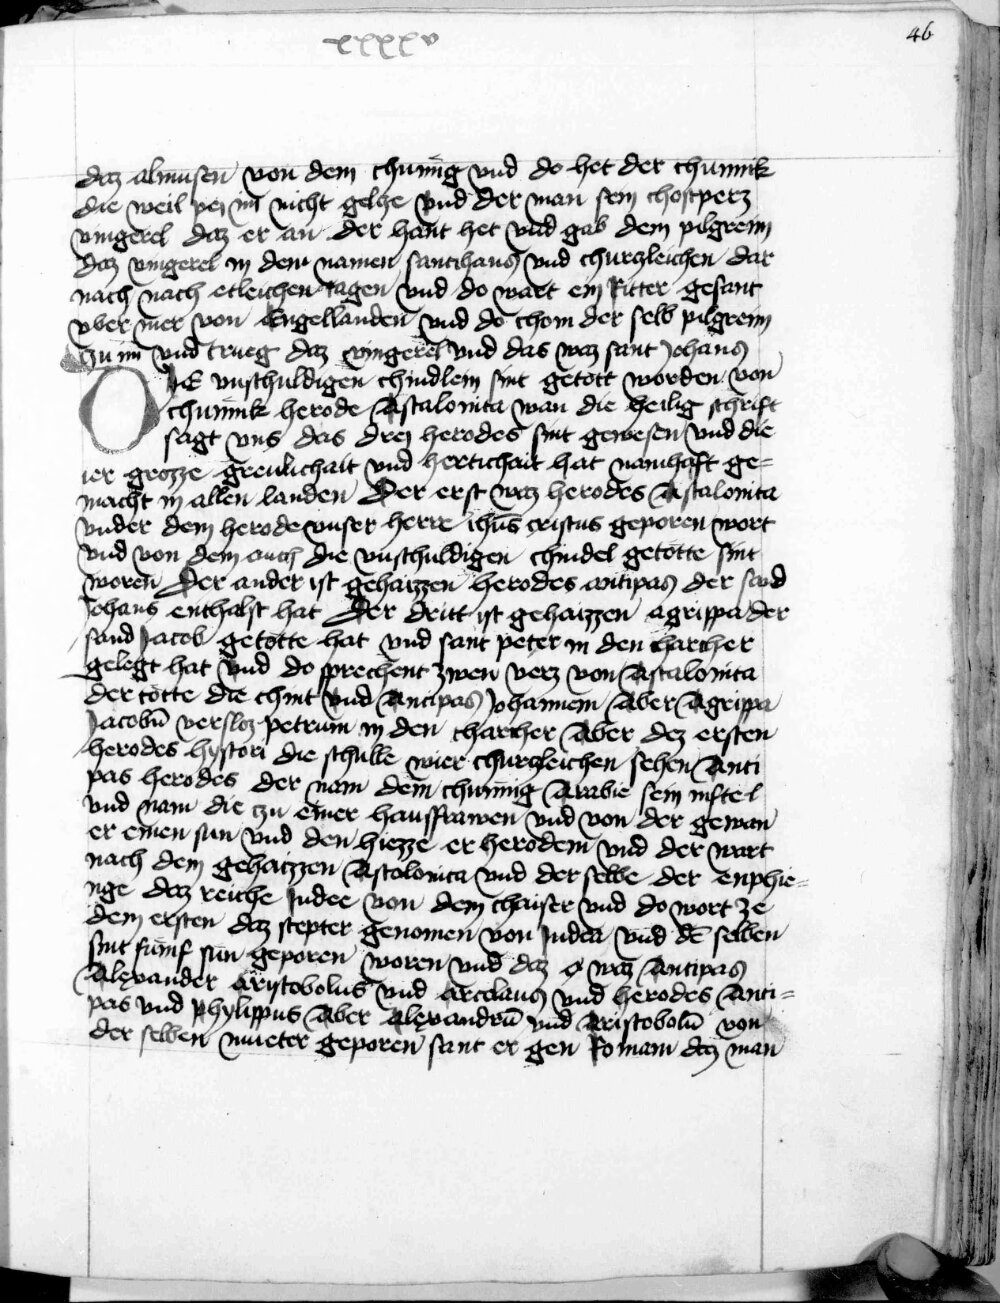 xxxxv
46
daz almusen von dem chunig vnd do het der chunnik
die weil pei im nicht gelhe vnd der man sein chostperz
vingerel daz er an der hant het vnd gab dem pilgreim
daz vingerel in dem namen sant ihans vnd churczleichen dar
nach nach etleichen tagen vnd do wart ein Ritter gesant
vber mer von Engellanden vnd do chom der selb pilgreim
zu im vnd trueg daz vingerel vnd das waz sant Johans
DIE vnschuldigen chindlein sint getott worden von
chunnik herode Astalonita wan die heilig schrift
sagt vns das drei herodes sint gewesen vnd die
ier grozze greulichait vnd hertichait hat namhaft ge=
macht in allen landen Der erst waz herodes Astalonita
vnder dem herode vnser herre ihūs cristus geporen wort
vnd von dem auch die vnschuldigen chindel getotte sint
woren Der ander ist gehaizzen herodes antipas der sand
Johans enthalst hat Der dritt ist gehaizzen agrippa der
sand Jacob getotte hat vnd sant peter in den charcher
gelegt hat vnd do sprechent zwen verz von Astalonita
der totte die chint vnd Antipas Johannem Aber Agrippa
Jacobū versloz petrum in den charcher Aber dez ersten
herodes hystori die schulle wier churczleichen sehen Anti
pas herodes der nam dem chunnig Arabie sein niftel
vnd nam die zu einer hausfrawen vnd von der gewan
er einen sun vnd den hiezze er herodem vnd der wart
nach dem gehaizzen Astolonita vnd der selbe der enphie=
nge daz reiche Judee von dem chaiser vnd do wort ze
dem ersten daz stepter genomen von Judea vnd dē selben
sint funif sun geporen woren vnd daz waz Antipas
Alexander Aristobolus vnd Arcelaus vnd herodes Anti=
pas vnd phylippus Aber Alexandrū vnd Aristobolū von
der selben mueter geporen sant er gen Romam daz man